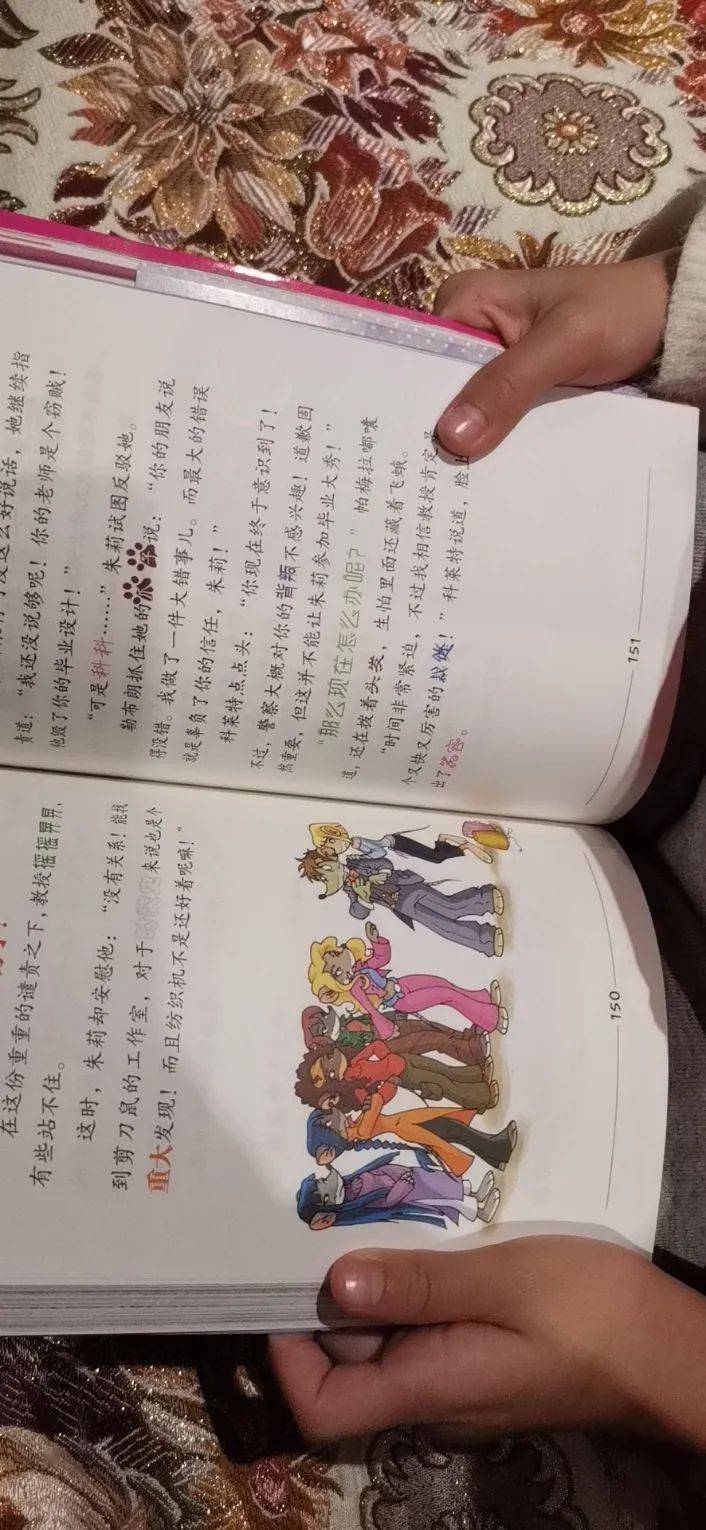 在这份重重的谴责之下，教授摇摇晃晃，
有些站不住。
这时，朱莉却安慰他：“没有关系！能找
到剪刀鼠的工作室，对于 来说也是个
重大发现！而且纺织机不是还好着呢嘛！”
150
这么好说话，她继续指
责道：“我还没说够呢！你的老师是个窃贼！
他毁了你的毕业设计！”
“可是科科……”朱莉试图反驳她。
勒布朗抓住她的 说：“你的朋友说
得没错。我做了一件大错事儿。而最大的错误
就是辜负了你的信任，朱莉！”
科莱特点点头：“你现在终于意识到了！
不过，警察大概对你的背叛不感兴趣！道歉固
然重要，但这并不能让朱莉参加毕业大秀！”
“那么现在怎么办呢？”帕梅拉嘟囔
道，还在拨着头发，生怕里面还藏着飞蛾。
“时间非常紧迫，不过我相信教授肯定
个又快又厉害的裁缝！”科莱特说道，脸上
出了笑容。
151